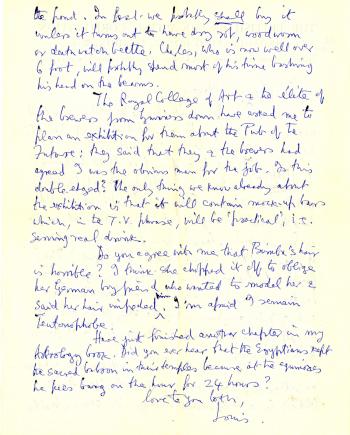 the pond. In fact we probably shall buy it
unless it turns out to have dry rot, woodworm
or deathwatch beetle. Charles, who is now well over
6 foot, will probably spend most of his time bashing
his head on the beams.
The Royal College of Art & the élite of
the brewers from Guinness down have asked me to
plan an exhibition for them about the Pub of the
Future: they said that they & the brewers had
agreed I was the obvious man for the job. Is this
double-edged? The only thing we know already about
the exhibition is that it will contain mock-up bars
which, in the T.V. phrase, will be 'practical', i.e.
serving real drink.
Do you agree with me that Bimba's hair
is horrible? I think she chopped it off to oblige
her German boyfriend who wanted to model her &
said her hair impeded. I'm afraid I remain
Teutonophobe.
Have just finished another chapter in my
Astrology book. Did you ever hear that the Egyptians kept
the sacred baboon in their temples because at the equinoxes
he pees bang on the hour for 24 hours?
love to you both,
Louis.